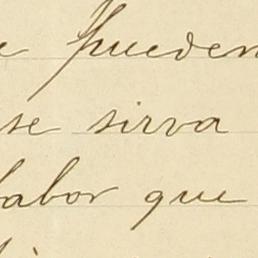 pueden
se sirva
labor que